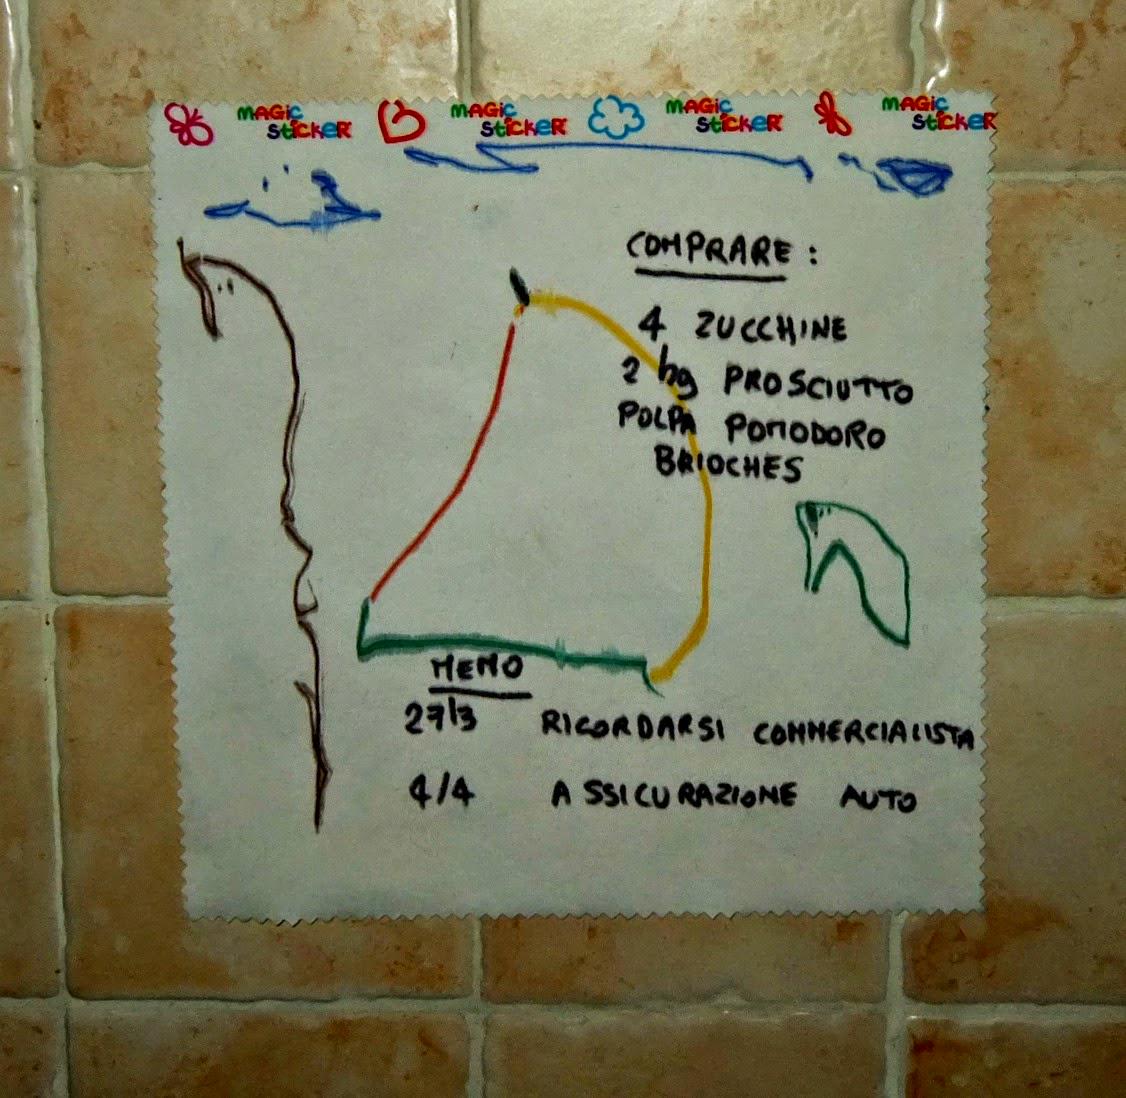 MAGiC MAGiC MAGiC MAGiC
SticKER SticKER SticKER SticKER
COMPRARE :
4 ZUCCHINE
2 hg PROSCIUTTO
POLPA POMODORO
BRIOCHES
MEMO
27/3 RICORDARSI COMMERCIALISTA
4/4 ASSICURAZIONE AUTO